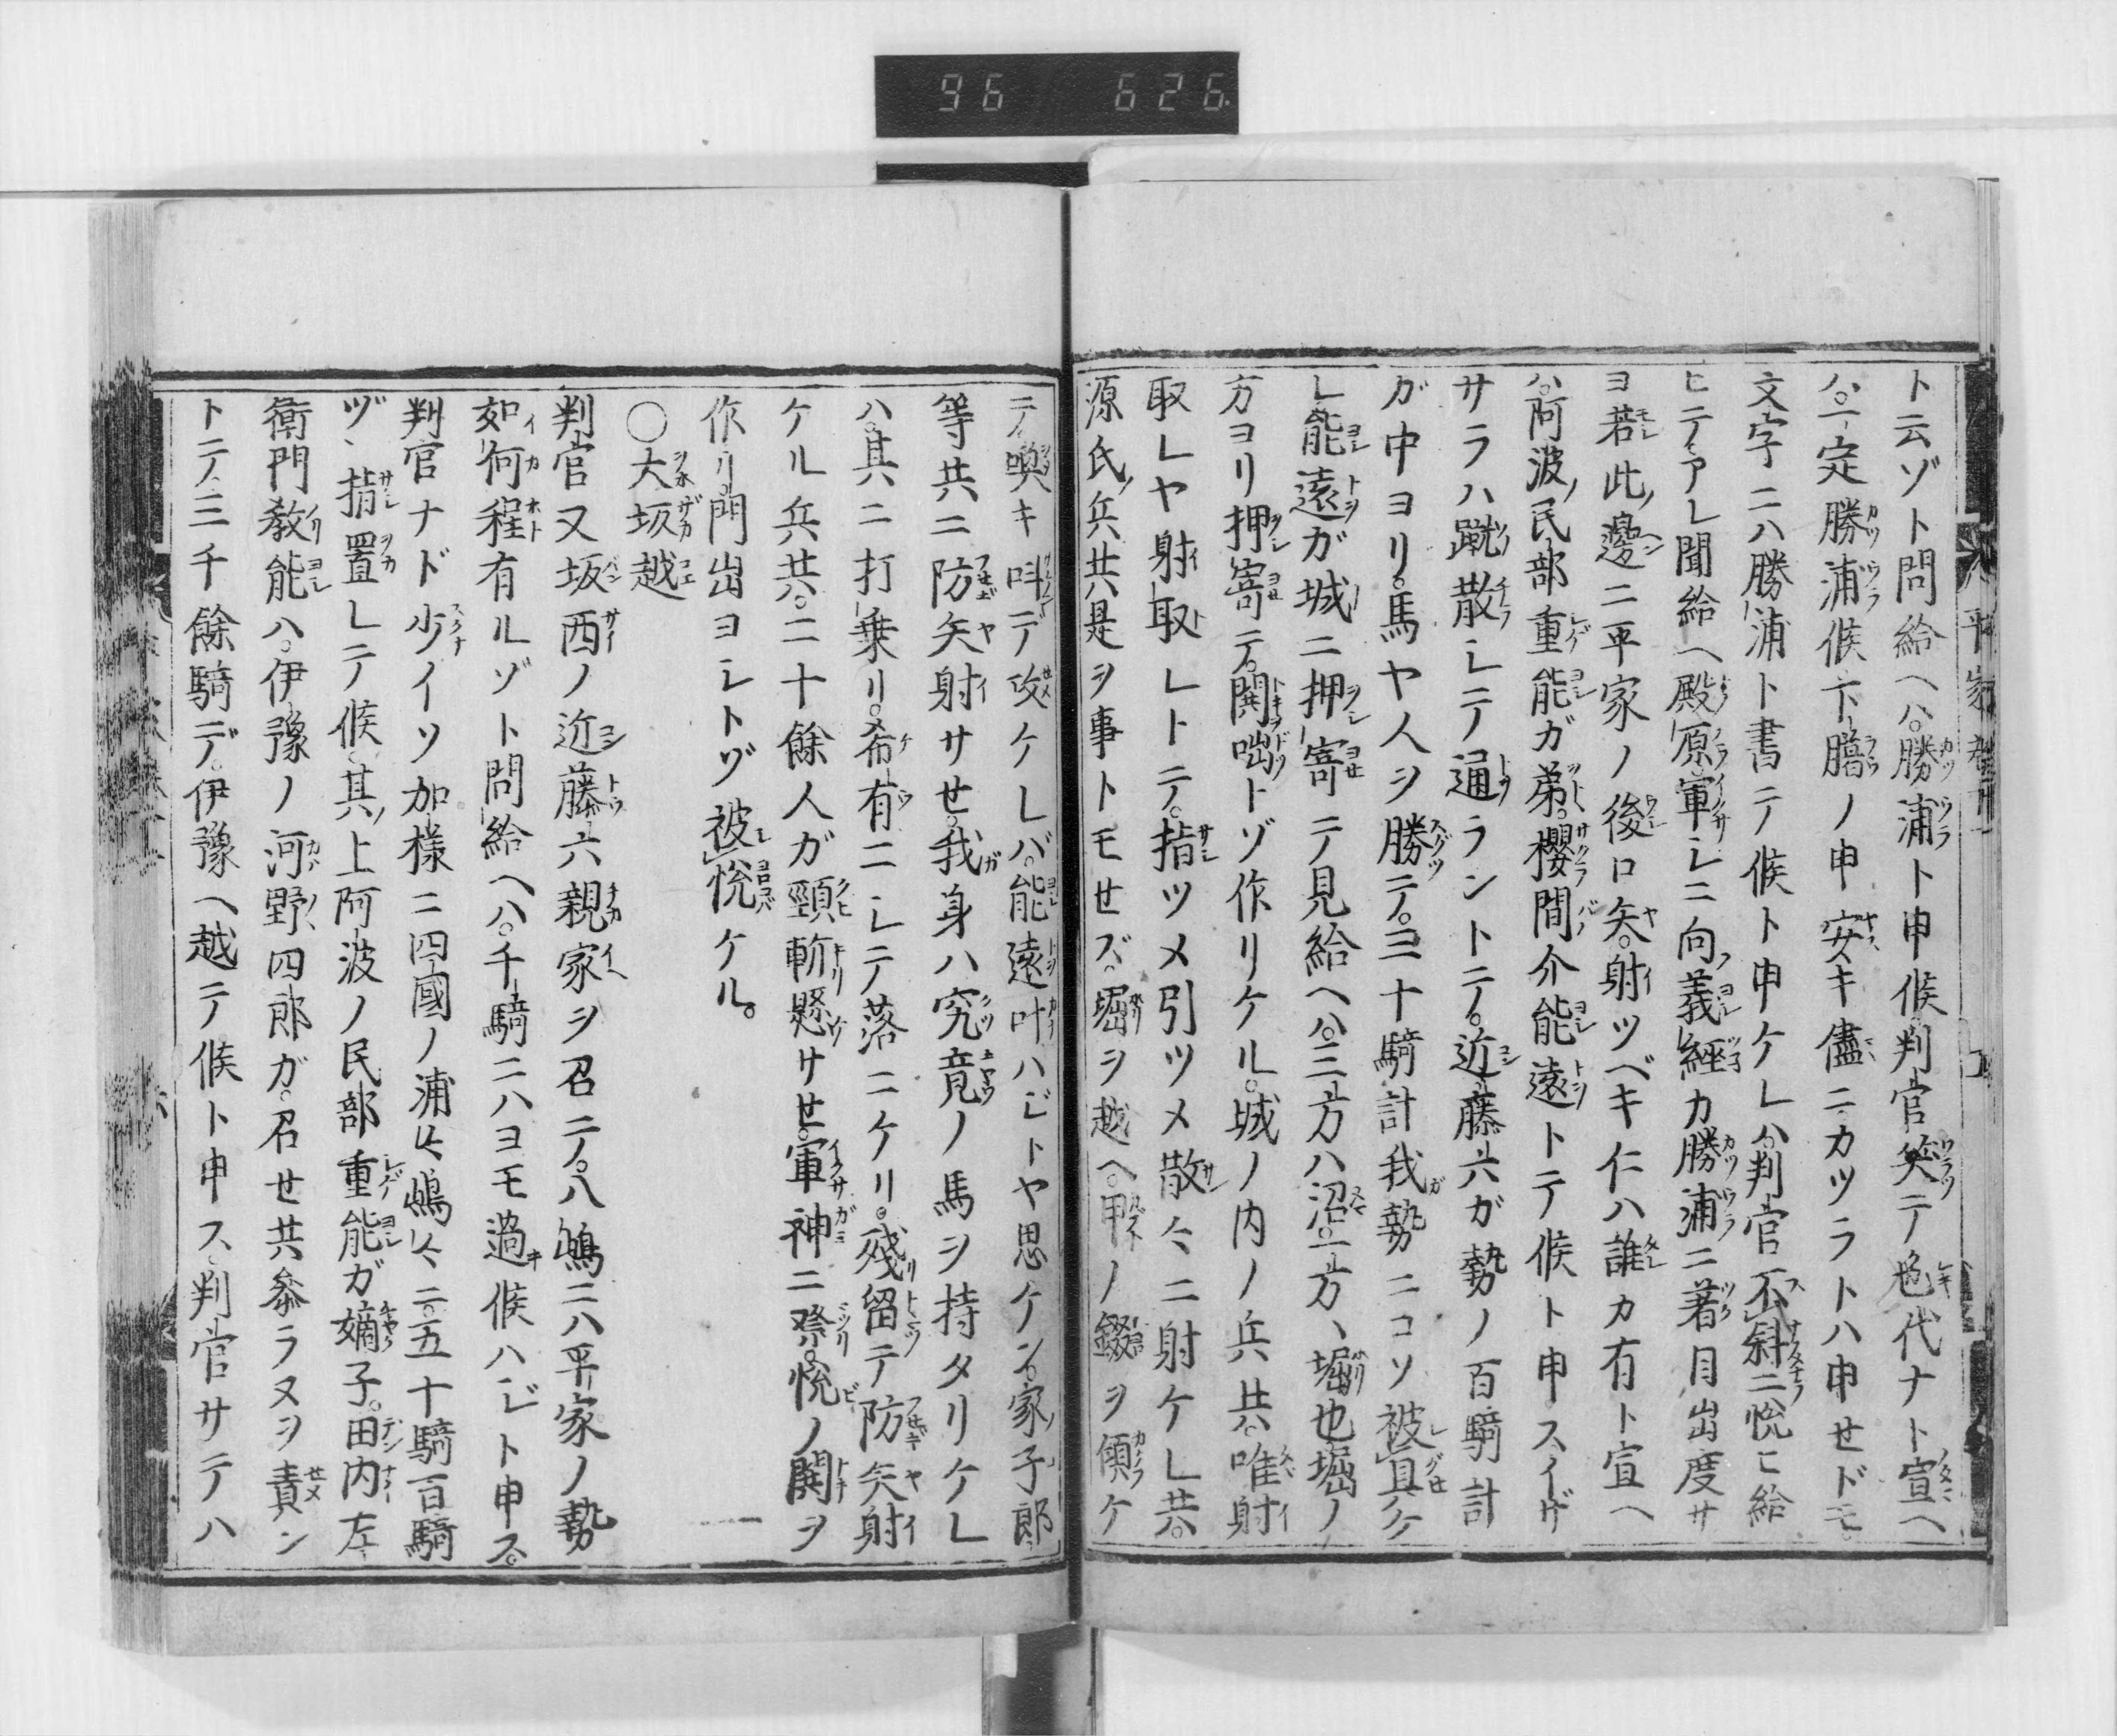 96 626
ト云ゾト問給ヘハ。勝浦ト申候。判官笑テ色代ナト宣ヘ
ハ。一定勝浦候。下臈ノ申安キ儘ニカツラトハ申せドモ。
文字ニハ勝浦ト書テ候ト申ケレハ。判官不斜ニ悦ヒ給
ヒテ。アレ聞給ヘ殿原。軍シニ向フ義經カ勝浦ニ著目出度サ
ヨ。若此ノ邊ニ平家ノ後ロ矢。射ツベキ仁ハ誰カ有ト宣ヘ
ハ。阿波ノ民部重能ガ弟。櫻間介能遠トテ候ト申ス。イザ
サラハ蹴散シテ通ラントテ。近藤六ガ勢ノ百騎計
ガ中ヨリ。馬ヤ人ヲ勝テ。三十騎計我勢ニコソ被具ケ
レ。能遠ガ城ニ押寄テ見給ヘハ。三方ハ沼。一方ハ堀也。堀ノ
方ヨリ押寄テ。鬨咄トゾ作リケル。城ノ内ノ兵共。唯射
取レヤ射取レトテ。指ツメ引ツメ散々ニ射ケレ共。
源氏ノ兵共是ヲ事トモせズ。堀ヲ越ヘ。甲ノ錣ヲ傾ケ
テ。喚キ叫デ攻ケレバ。能遠叶ハジトヤ思ケン。家ノ子郎
等共ニ防矢射サせ。我身ハ究竟ノ馬ヲ持タリケレ
ハ。其ニ打乗リ。希有ニシテ落ニケリ。殘留テ防矢射
ケル兵共。二十餘人ガ頸斬懸サせ。軍神ニ祭。悦ノ鬨ヲ
作リ。門出ヨシトゾ被悦ケル。
〇大坂越
判官又坂西ノ近藤六親家ヲ召テ。八嶋ニハ平家ノ勢
如何程有ルゾト問給ヘハ。千騎ニハヨモ過候ハジト申ス。
判官ナド少イソ。加樣ニ四國ノ浦々嶋々ニ。五十騎百騎
ヅヽ指置レテ候。其ノ上阿波ノ民部重能ガ嫡子。田内左
衛門教能ハ。伊豫ノ河野ノ四郎ガ。召せ共參ラヌヲ責ン
トテ。三千餘騎デ。伊豫ヘ越テ候ト申ス。判官サテハ